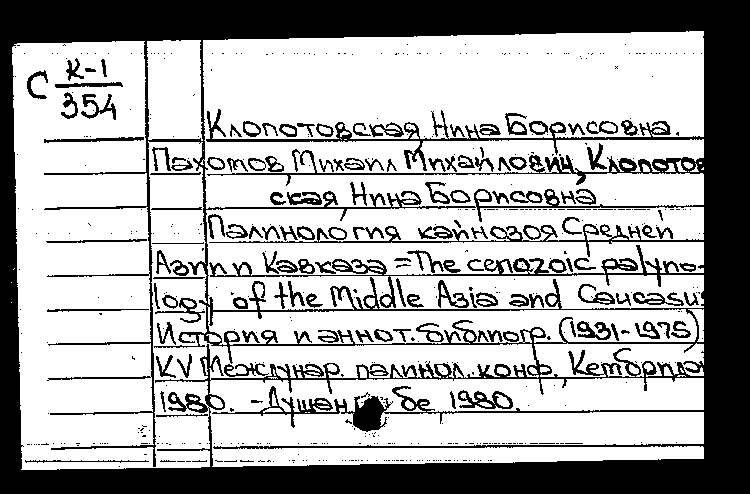 С К-1
354
Клопотовская Нина Борисовна.
Пахомов, Михаил Михайлович, Клопотов
ская Нина Борисовна.
Палинология кайнозоя Средней
Азии и Кавказа = The cenozoic palyno-
logy of the Middle Asia and Caucasus
История и аннот. библиогр. (1931-1975)
К V Междунар. палинол. конф., Кембридж
1980. - Душан бе 1980.